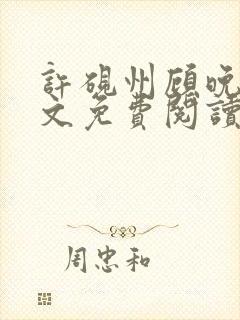 許硯州顧晚
文免費閱讀
周忠和